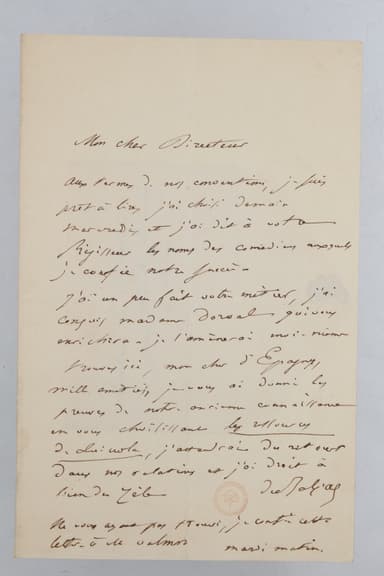 Mon cher Directeur
aux termes de nos conventions, je suis
prêt à lire, j'ai choisi demain
mercredi et j'ai dit à votre
Régisseur les noms des comédiens auxquels
je confie notre succès
J'ai un peu fait votre métier, j'ai
conquis madame Dorval qui vous
enrichira — je l'amènerai moi-même
trouvez ici, mon cher d'Epagny,
mille amitiés, je vous ai donné les
preuves de notre ancienne connaissance
en vous choisissant les ressources
de Quinola, j'attendrai du retour
dans nos relations et j'ai droit à
bien du zèle
de Balzac
Ne vous ayant pas trouvé, je confie cette
lettre à Mr Valmor
mardi matin.